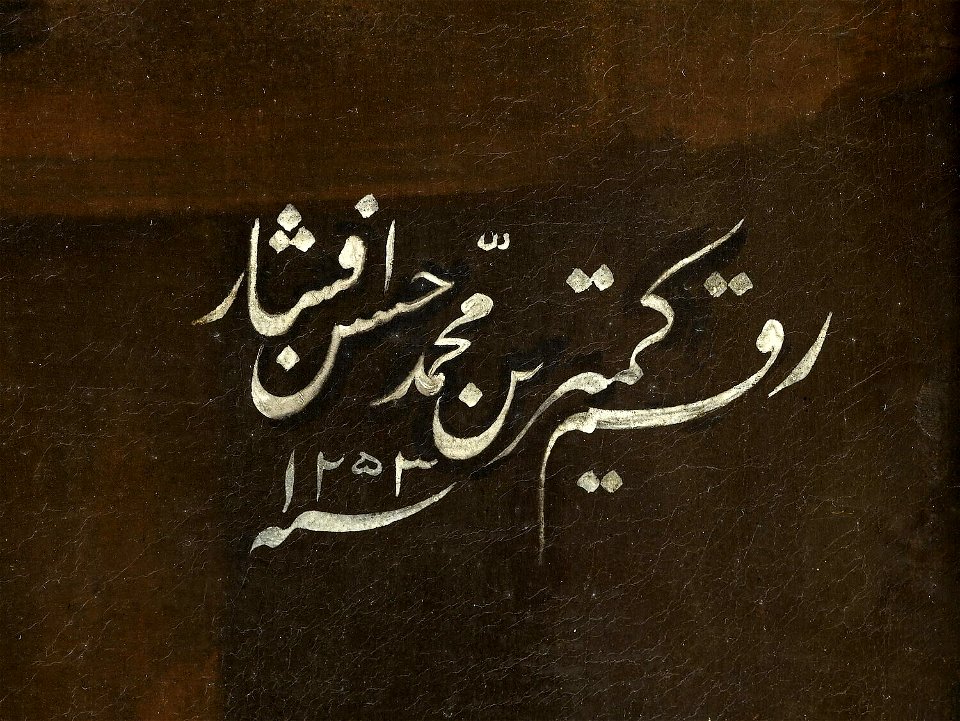 رقیم کمترین محمد حسن افشار
سنه ۱۲۵۳